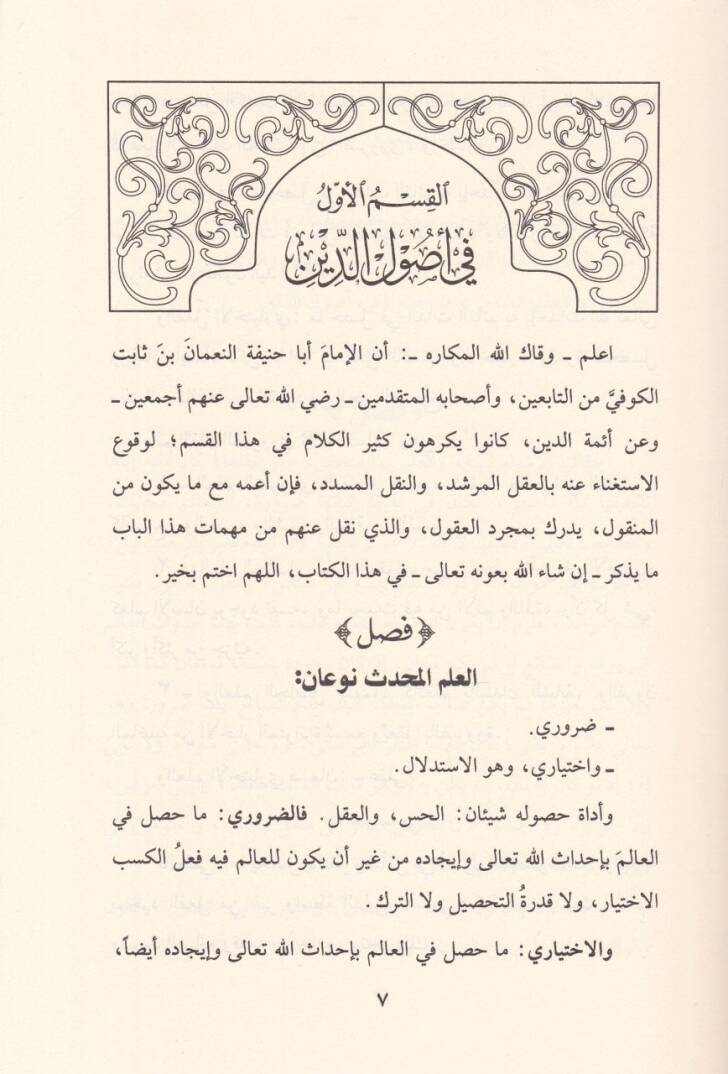 القِسْمُ الأوّلُ
في أصُولِ الدِّيْنِ
اعلم ـ وقاك الله المكاره ـ: أن الإمامَ أبا حنيفة النعمانَ بنَ ثابت
الكوفيَّ من التابعين، وأصحابه المتقدمين ـ رضي الله تعالى عنهم أجمعين ـ
وعن أئمة الدين، كانوا يكرهون كثير الكلام في هذا القسم؛ لوقوع
الاستغناء عنه بالعقل المرشد، والنقل المسدد، فإن أعمه مع ما يكون من
المنقول، يدرك بمجرد العقول، والذي نقل عنهم من مهمات هذا الباب
ما يذكر ـ إن شاء الله بعونه تعالى ـ في هذا الكتاب، اللهم اختم بخير.
﴿ فصل ﴾
العلم المحدث نوعان:
ـ ضروري.
ـ واختياري، وهو الاستدلال.
وأداة حصوله شيئان: الحس، والعقل. فالضروري: ما حصل في
العالمَ بإحداث الله تعالى وإيجاده من غير أن يكون للعالم فيه فعلُ الكسب
الاختيار، ولا قدرةُ التحصيل ولا الترك.
والاختياري: ما حصل في العالم بإحداث الله تعالى وإيجاده أيضاً،
٧